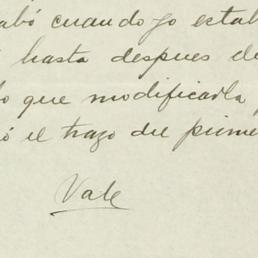 abó cuando yo estab
hasta despues de
o que modificarla
ó el trazo du prime
Vale